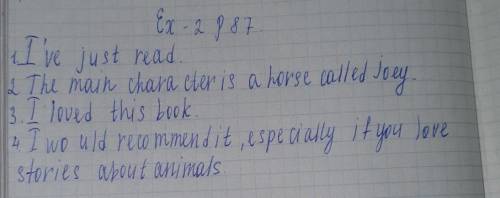 Ex-2 p 87.
1. I've just read.
2. The main character is a horse called Joey.
3. I loved this book.
4. I would recommend it, especially if you love
stories about animals.